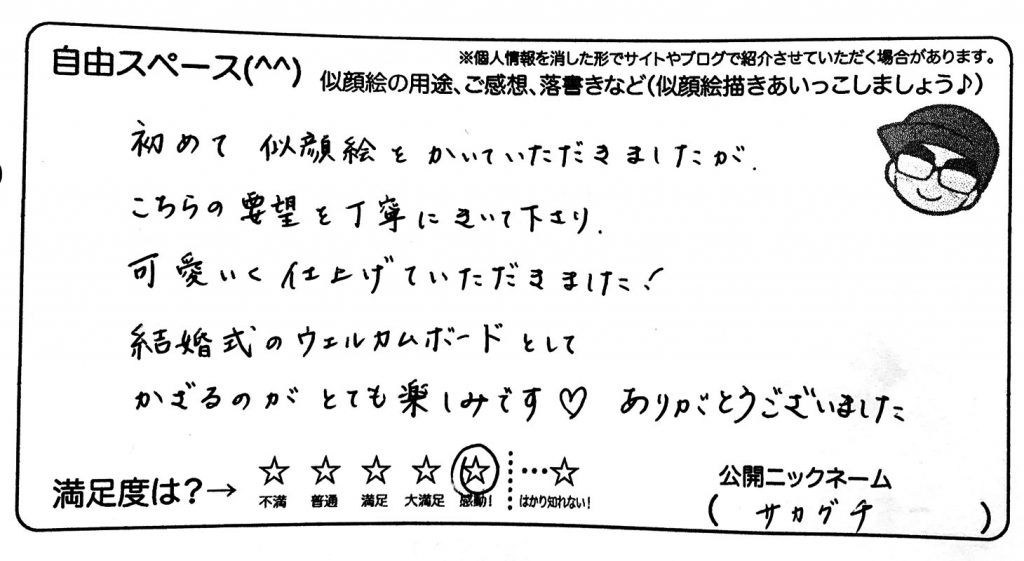 自由スペース(^^)
※個人情報を消した形でサイトやブログで紹介させていただく場合があります。
似顔絵の用途、ご感想、落書きなど(似顔絵描きあいっこしましょう♪)
初めて 似顔絵をかいていただきましたが、
こちらの要望を丁寧にきいて下さり、
可愛いく仕上げていただきました!
結婚式のウェルカムボードとして
かざるのがとても楽しみです♡ ありがとうございました
満足度は?→ ☆ ☆ ☆ ☆ ☆ …☆
不満 普通 満足 大満足 感動! はかり知れない!
公開ニックネーム
( サカグチ )